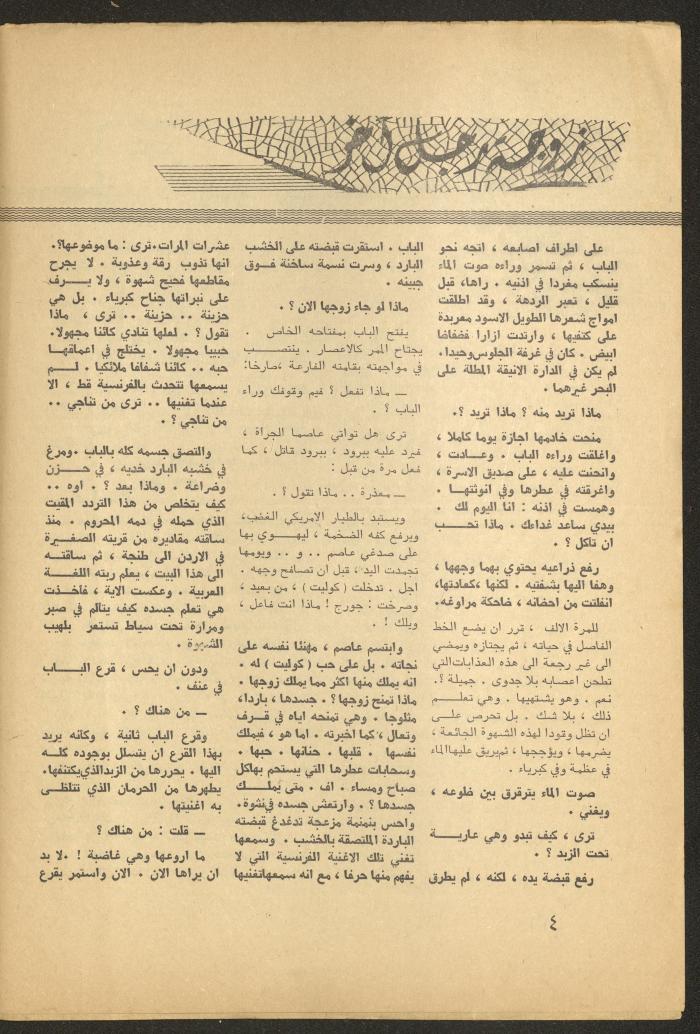 زوجة رجل آخر
على اطراف اصابعه ، اتجه نحو
الباب ، ثم تسمر وراءه صوت الماء
ينسكب مغردا في اذنيه . راها، قبل
قليل ، تعبر الردهة ، وقد اطلقت
امواج شعرها الطويل الاسود معربدة
على كتفيها ، وارتدت ازارا فضفاضا
ابيض . كان في غرفة الجلوس وحيدا.
لم يكن في الدارة الانيقة المطلة على
البحر غيرهما .
ماذا تريد منه ؟ ماذا تريد ؟.
منحت خادمها اجازة يوما كاملا ،
واغلقت وراءه الباب . وعادت ،
وانحنت عليه ، على صديق الاسرة ،
واغرقته في عطرها وفي انوثتها .
وهمست في اذنه : انا اليوم لك .
بيدي ساعد غداءك . ماذا تحب
ان تاكل ؟ .
رفع ذراعيه يحتوي بهما وجهها ،
وهفا اليها بشفتيه . لكنها ،كعادتها،
انفلتت من احضانه ، ضاحكة مراوغه.
للمرة الالف ، تقرر ان يضع الخط
الفاصل في حياته ، ثم يجتازه ويمضي
الى غير رجعة الى هذه العذابات التي
تطحن اعصابه بلا جدوى . جميلة ؟.
نعم . وهو يشتهيها . وهي تعلم
ذلك ، بلا شك . بل تحرص على
ان تظل وقودا لهذه الشهوة الجائعة ،
يضرمها ، ويؤججها ، ثم يريق عليها الماء
في عظمة وفي كبرياء .
صوت الماء يترقرق بين ضلوعه ،
ويغني .
ترى ، كيف تبدو وهي عارية
تحت الزبد ؟ .
رفع قبضة يده ، لكنه ، لم يطرق
الباب . استقرت قبضته على الخشب
البارد ، وسرت نسمة ساخنة فوق
جبينه .
ماذا لو جاء زوجها الان ؟ .
يفتح الباب بمفتاحه الخاص .
يجتاح الممر كالاعصار . ينتصب
في مواجهته بقامته الفارعة ،صارخا:
ــ ماذا تفعل ؟ فيم وقوفك وراء
الباب ؟ .
ترى هل تواتي عاصما الجراة ،
فيرد عليه ببرود ، ببرود قاتل ، كما
فعل مرة من قبل :
ــ معذرة .. ماذا تقول ؟ .
ويستبد بالطيار الامريكي الغضب،
ويرفع كفه الضخمة ، ليهوي بها
على صدغي عاصم .. و .. ويومها
تجمدت اليد ، قبل ان تصافح وجهه .
اجل . تدخلت ( كوليت ) ، من بعيد ،
وصرخت : جورج ! ماذا انت فاعل ،
ويلك ! .
وابتسم عاصم ، مهنئا نفسه على
نجاته . بل على حب ( كوليت ) له .
انه يملك منها اكثر مما يملك زوجها .
ماذا تمنح زوجها ؟ . جسدها ، باردا،
مثلوجا . وهي تمنحه اياه في قرف
وتعال ،كما اخبرته . اما هو ، فيملك
نفسها . قلبها . حنانها . حبها .
وسحابات عطرها التي يستحم بها كل
صباح ومساء . اف . متى يملك
جسدها ؟ . وارتعش جسده في نشوة.
واحس بنمنمة مزعجة تدغدغ قبضته
الباردة الملتصقة بالخشب . وسمعها
تغني تلك الاغنية الفرنسية التي لا
يفهم منها حرفا ، مع انه سمعها تغنيها
عشرات المرات.ترى : ما موضوعها؟.
انها تذوب رقة وعذوبة . لا يجرح
مقاطعها فحيح شهوة ، ولا يرف
على نبراتها جناح كبرياء . بل هي
حزينة .. حزينة .. ترى ، ماذا
تقول ؟ . لعلها تنادي كائنا مجهولا.
حبيبا مجهولا . يختلج في اعماقها
حبه .. كائنا شفافا ملائكيا . لم
يسمعها تتحدث بالفرنسية قط ، الا
عندما تغنيها .. ترى من تناجي ..
من تناجي ؟ .
والتصق جسمه كله بالباب .ومرغ
في خشبه البارد خديه ، في حزن
وضراعة . وماذا بعد ؟ . اوه ..
كيف يتخلص من هذا التردد المقيت
الذي حمله في دمه المحروم . منذ
ساقته مقاديره من قريته الصغيرة
في الاردن الى طنجة ، ثم ساقته
الى هذا البيت ، يعلم ربته اللغة
العربية . وعكست الاية ، فاخذت
هي تعلم جسده كيف يتالم في صبر
ومرارة تحت سياط تستعر بلهيب
الشهوة .
ودون ان يحس ، قرع الباب
في عنف .
ــ من هناك ؟ .
وقرع الباب ثانية ، وكأنه يريد
بهذا القرع ان يتسلل بوجوده كله
اليها . يحررها من الزبد الذي يكتنفها.
يطهرها من الحرمان الذي تتلظى
به اغنيتها .
ــ قلت : من هناك ؟
ما اروعها وهي غاضبة ! .لا بد
ان يراها الان . الان واستمر يقرع
٤